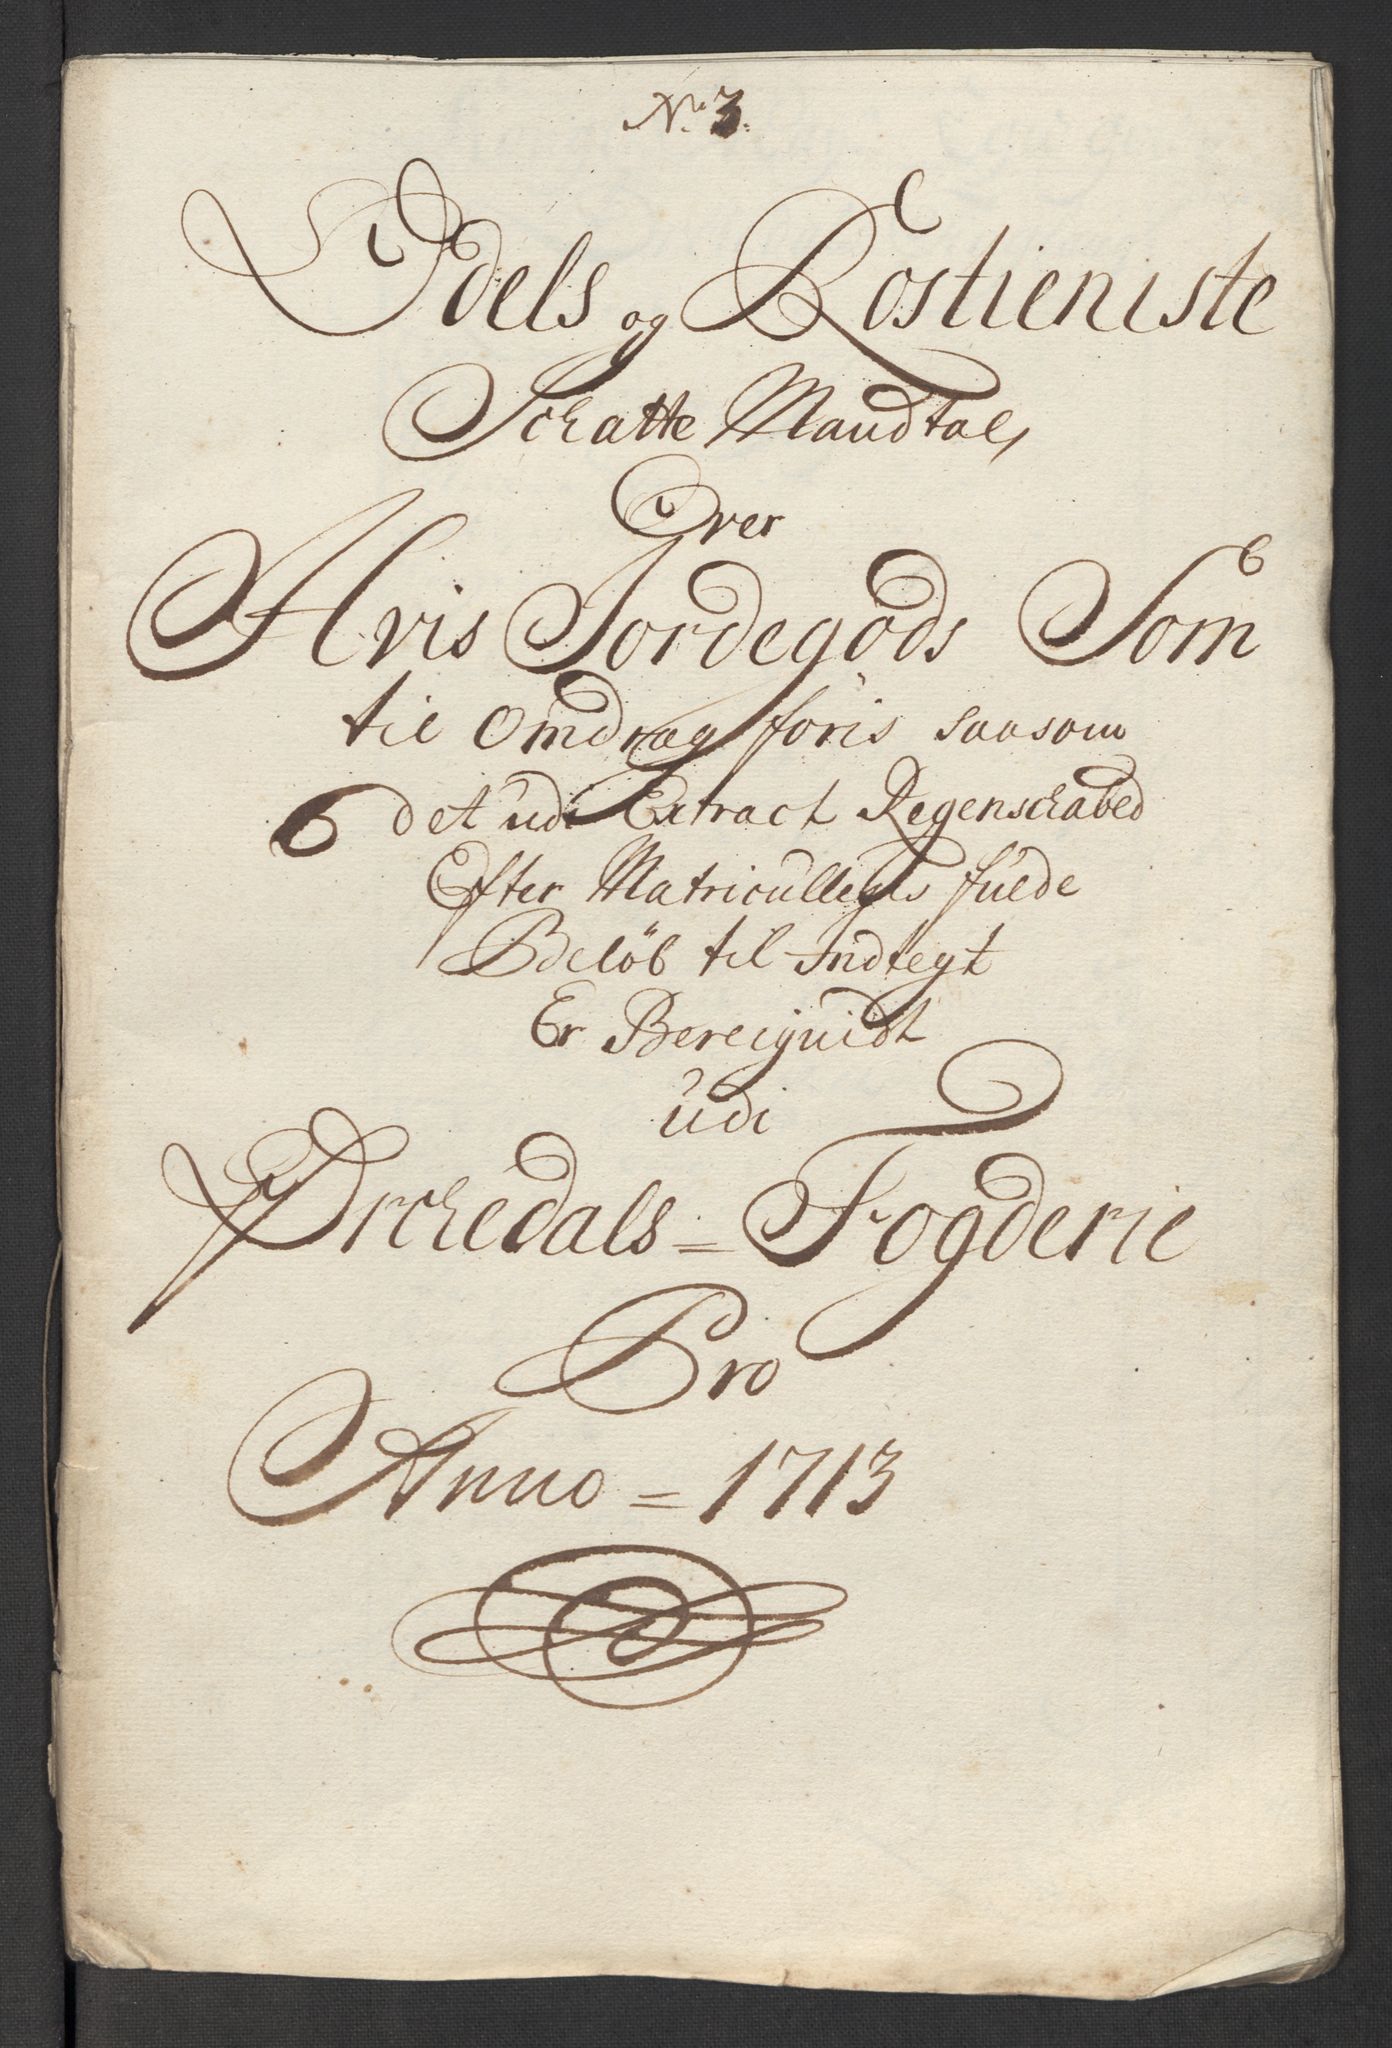 No 3.
Odels og Rostieniste
Schatte Mandtal,
Over
Hvis Jordegods Som
til Omdrag föris saasom
det udi Extract Regenschabed
Efter Matricullens fulde
Beløb til Indtegt
Er Bereignidt
udi
Orchedals = Fogderie
Pro
Anno = 1713